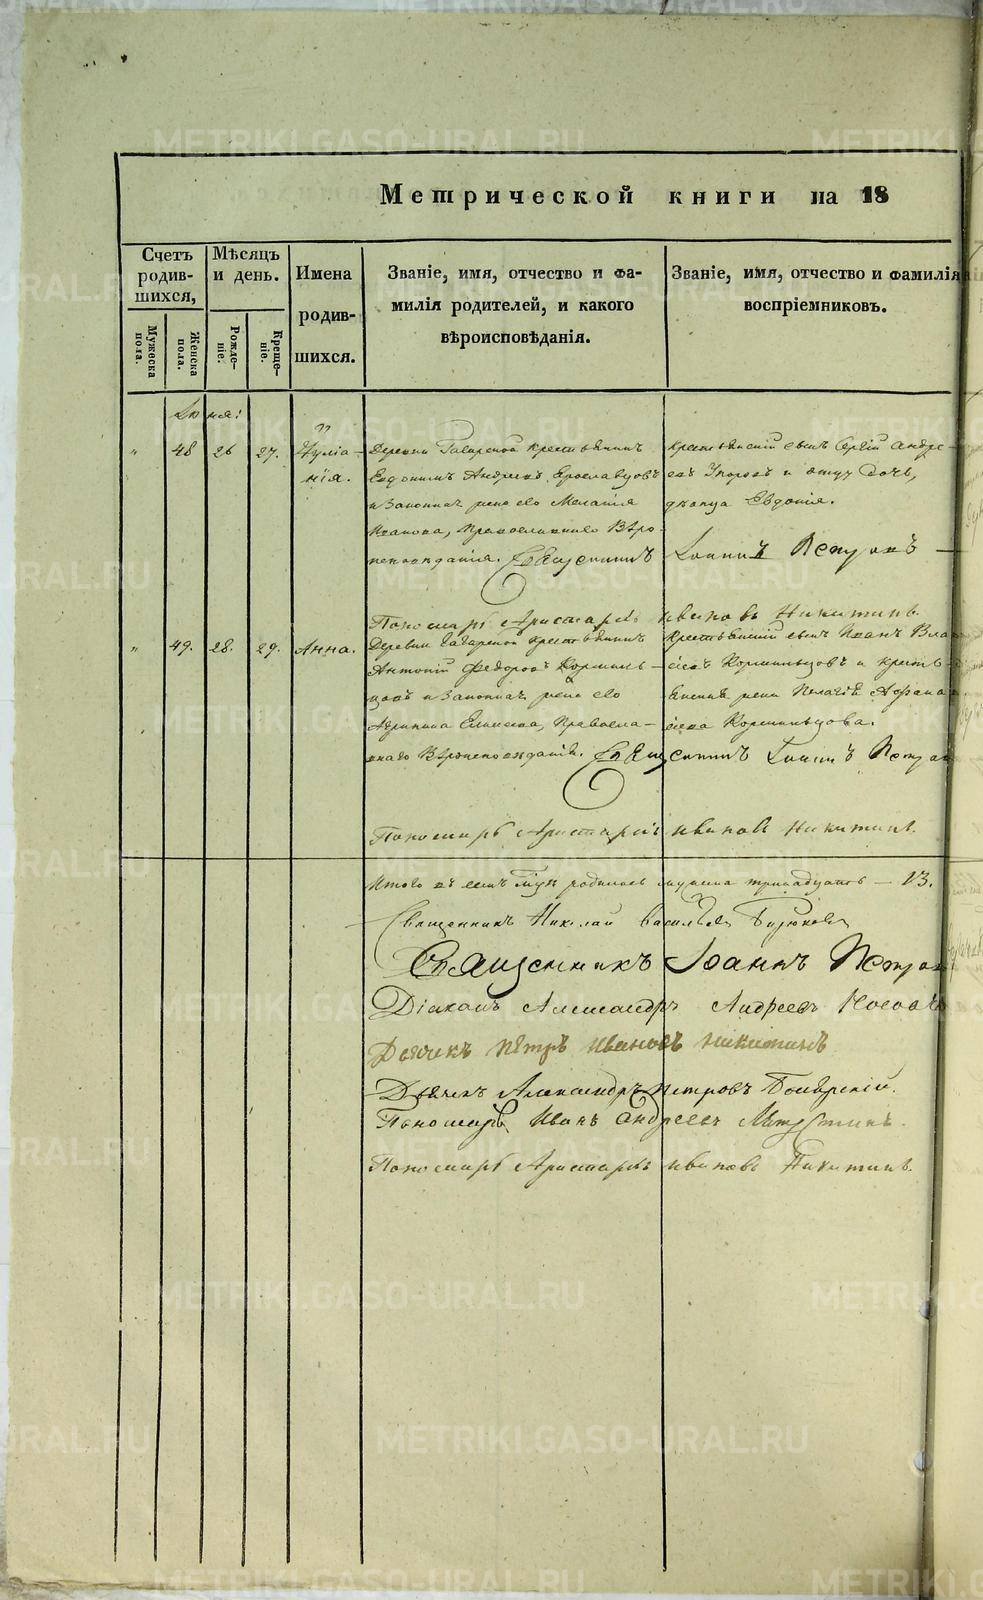 METRIKI.GASO-URAL.RU
Метрической книги на 18
Счетъ родив-шихся,
Мужеска пола.
Женска пола.
Мѣсяцъ и день.
Рожде-ніе.
Креще-ніе.
Имена родив-шихся.
Званіе, имя, отчество и фа-
милія родителей, и какого
вѣроисповѣданія.
Званіе, имя, отчество и фамилія
воспріемниковъ.
Іюня:
48 26 27. Іуліа-
нія.
Деревни крестьянинъ
Евдокимъ Андреевъ Ярославцовъ
и законная жена его Меланія
Иванова, Православнаго Вѣро-
исповѣданія. Священникъ Іоаннъ Петровъ
крестьянскій сынъ Сергій Андре-
евъ и отцу дочь,
дѣвица Евдокія.
Пономарь Аристархъ Ивановъ Никитинъ.
49. 28. 29. Анна.
Деревни крестьянинъ
Антоній Ѳедоровъ Кормиль-
цовъ и законная жена его
Елисеева, Правосла-
внаго Вѣроисповѣданія. Священникъ Іоаннъ Петров
крестьянскій сынъ Иванъ Вла
сіевъ Кормильцовъ и кресть-
янская жена Пелагія Афана
сіева Кормильцова.
Пономарь Аристархъ Ивановъ Никитинъ.
Итого въ семъ родилось мужеска тринадцать — 13.
Священникъ Николай Васильевъ Бирюковъ
Священникъ Іоаннъ Петров
Діаконъ Александръ Андреевъ Носовъ
Дьячекъ Петръ Ивановъ Никитинъ
Дьячекъ Александръ Петровъ
Пономарь Иванъ Андреевъ
Пономарь Аристархъ Ивановъ Никитинъ.